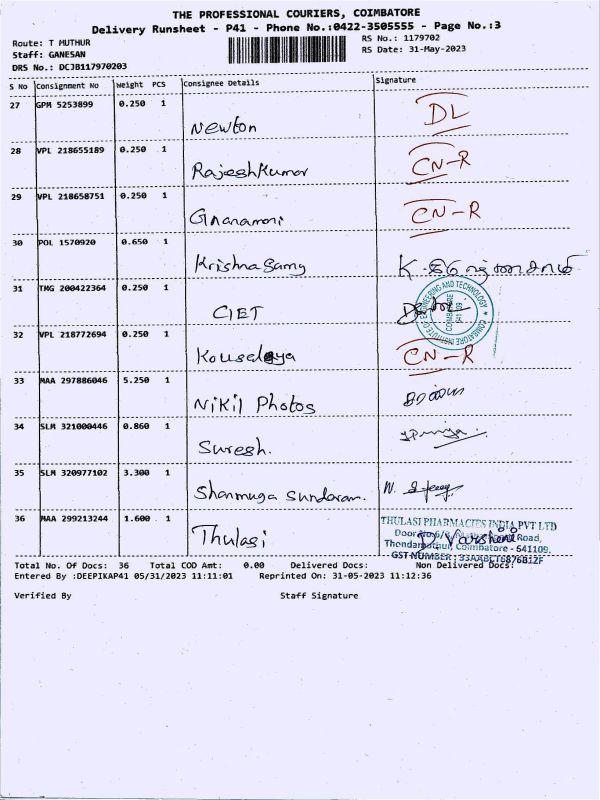 THE PROFESSIONAL COURIERS, COIMBATORE
Delivery Runsheet - P41 - Phone No.:0422-3505555 - Page No.:3
Route: T MUTHUR RS No.: 1179702
Staff: GANESAN RS Date: 31-May-2023
DRS No.: DCJB117970203
S No Consignment No Weight PCS Consignee Details Signature
27 GPM 5253899 0.250 1 Newton DL
28 VPL 218655189 0.250 1 RajeshKumar CN-R
29 VPL 218658751 0.250 1 Gnanamani CN-R
30 POL 1570920 0.650 1 Krishnasamy K. கிருஷ்ணசாமி
31 TMG 200422364 0.250 1 CIET
COIMBATORE INSTITUTE OF ENGINEERING AND TECHNOLOGY
COIMBATORE 641 109
32 VPL 218772694 0.250 1 Kousalya CN-R
33 MAA 297886046 5.250 1 Nikil Photos
34 SLM 321000446 0.860 1 Suresh.
35 SLM 320977102 3.300 1 Shanmuga Sundaram. N.
36 MAA 299213244 1.600 1 Thulasi
THULASI PHARMACIES INDIA PVT LTD
Door No Road,
Thondamuthur, Coimbatore - 641109.
GST NUMBER:
Varshini
Total No. Of Docs: 36 Total COD Amt: 0.00 Delivered Docs: Non Delivered Docs:
Entered By :DEEPIKAP41 05/31/2023 11:11:01 Reprinted On: 31-05-2023 11:12:36
Verified By Staff Signature